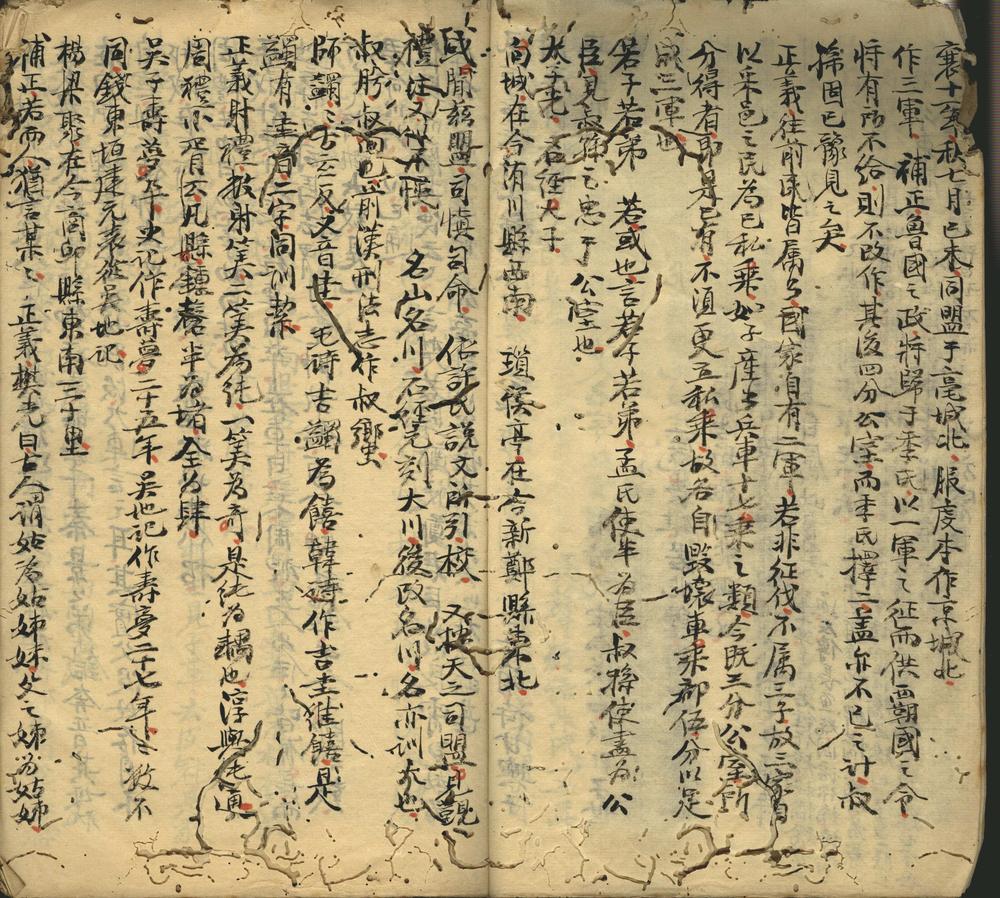 襄十一年秋七月己未同盟于亳城北服虔本作京城北
作三軍 補正魯國之政將歸于季氏以一軍之征而供霸國之令
將有所不給則不改作其後四分公室而季氏擇二蓋亦不已之計叔
孫固已豫見之矣
正義往前民皆屬公國家自有二軍若非征伐不屬三子故三家自
以采邑之民為己私乘如子產出兵車十七乘之類今既三分公室所
分得者即是己有不須更立私乘故各自毀壞車乘部伍分以足
成三軍也
若子若弟 若或也言若子若弟孟氏使半為臣叔孫使盡為公
臣見叔孫之忠于公室也
大子光 石經大子
向城在今洧川縣西南 瑣侯亭在今新鄭縣東北
或閒茲盟司慎司命 依許氏說文所引校 又按天之司盟見覲
禮注又作不慎 名山名川石經先刻大川後改名川名亦訓大也
叔肸叔向也前漢刑法志作叔嚮
師蠲蠲古玄反又音圭 毛詩吉蠲為饎韓詩作吉圭惟饎是
蠲有圭音二字同訓潔
正義射禮數射筭二筭為純一筭為奇是純為耦也淳與純通
周禮小胥云凡縣鍾磬半為堵全為肆
吳子壽夢卒史記作壽夢二十五年吳世記作壽夢二十七年 數不
同錢東垣建元表從吳地記
楊梁聚在今商邱縣東南三十里
補正若而人猶言某某 正義樊光曰古人謂姑為姑姊妹父之姊為姑姊